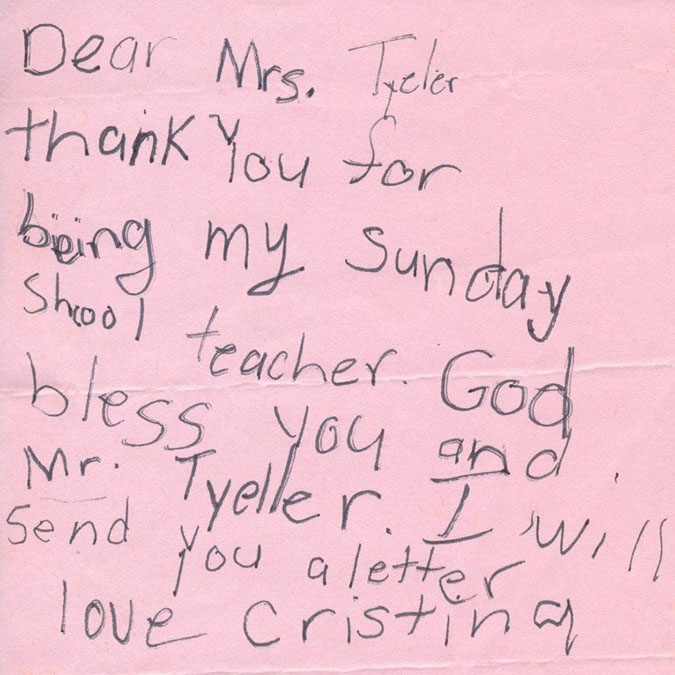 Dear Mrs. Tyeler
thank you for
being my sunday
Shool teacher. God
bless you and
Mr. Tyeller. I will
Send you a letter
love cristina